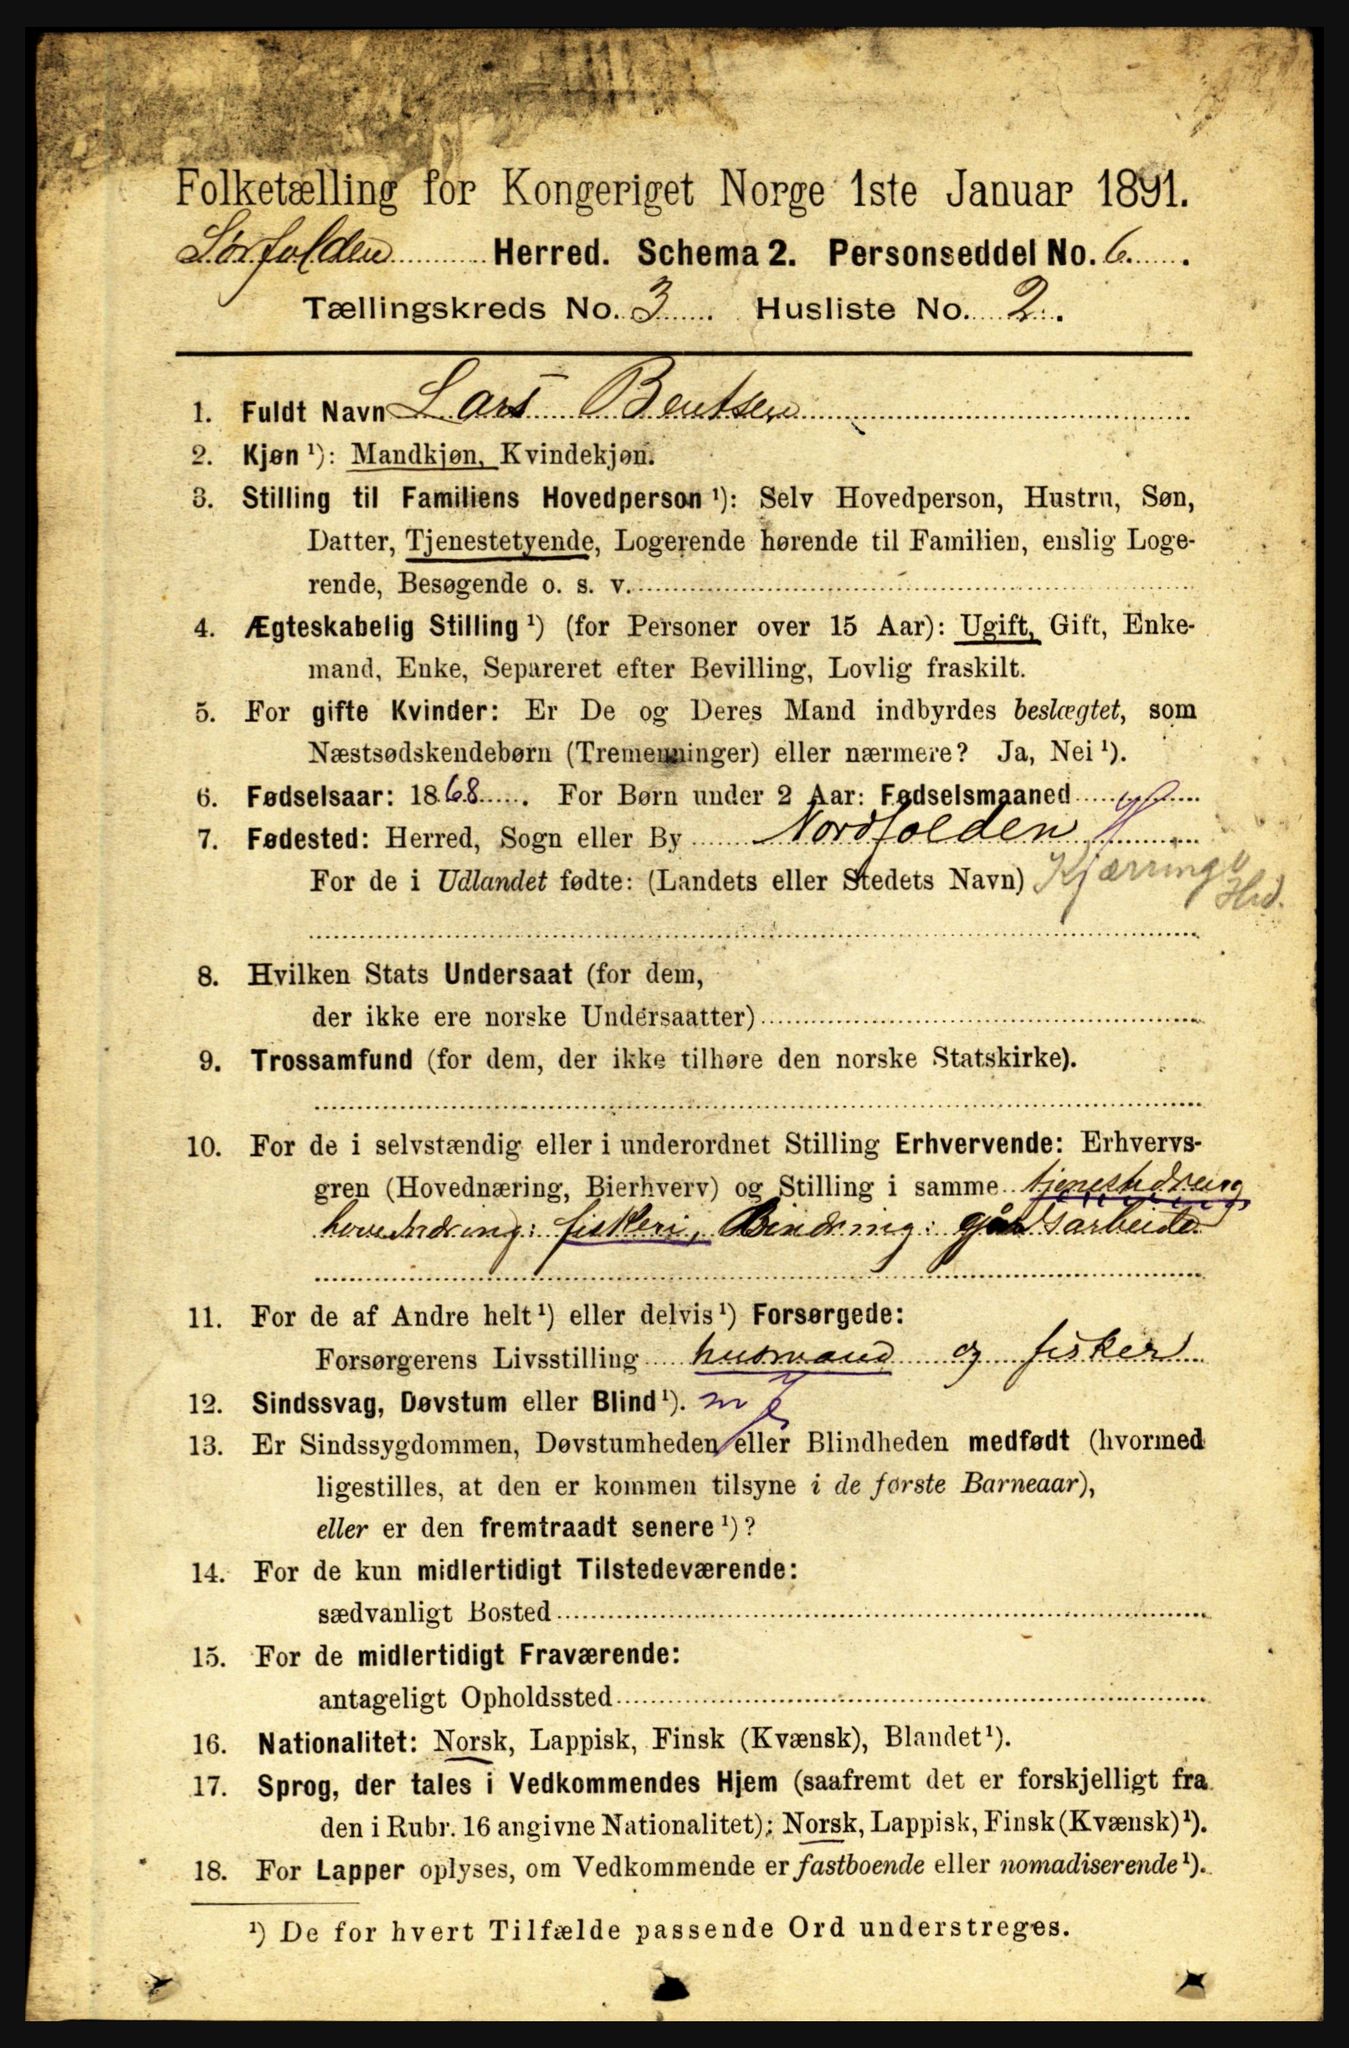 Folketælling for Kongeriget Norge 1ste Januar 1891.
Sørfolden Herred. Schema 2. Personseddel No. 6.
Tællingskreds No. 3. Husliste No. 2.
1. Fuldt Navn Lars Bentsen
2. Kjøn ¹): Mandkjøn, Kvindekjøn.
3. Stilling til Familiens Hovedperson ¹): Selv Hovedperson, Hustru, Søn,
Datter, Tjenestetyende, Logerende hørende til Familien, enslig Loge-
rende, Besøgende o. s. v.
4. Ægteskabelig Stilling ¹) (for Personer over 15 Aar): Ugift, Gift, Enke-
mand, Enke, Separeret efter Bevilling, Lovlig fraskilt.
5. For gifte Kvinder: Er De og Deres Mand indbyrdes beslægtet, som
Næstsødskendebørn (Tremenninger) eller nærmere? Ja, Nei ¹).
6. Fødselsaar: 1868. For Børn under 2 Aar: Fødselsmaaned
7. Fødested: Herred, Sogn eller By Nordfolden
For de i Udlandet fødte: (Landets eller Stedets Navn) Kjærringø
Hrd.
8. Hvilken Stats Undersaat (for dem,
der ikke ere norske Undersaatter)
9. Trossamfund (for dem, der ikke tilhøre den norske Statskirke).
10. For de i selvstændig eller i underordnet Stilling Erhvervende: Erhvervs-
gren (Hovednæring, Bierhverv) og Stilling i samme tjenestdreng
hovednæring: fiskeri, Binæring: gårdsarbeide
11. For de af Andre helt ¹) eller delvis ¹) Forsørgede:
Forsørgerens Livsstilling husmand og fisker
12. Sindssvag, Døvstum eller Blind ¹).
13. Er Sindssygdommen, Døvstumheden eller Blindheden medfødt (hvormed
ligestilles, at den er kommen tilsyne i de første Barneaar),
eller er den fremtraadt senere ¹)?
14. For de kun midlertidigt Tilstedeværende:
sædvanligt Bosted
15. For de midlertidigt Fraværende:
antageligt Opholdssted
16. Nationalitet: Norsk, Lappisk, Finsk (Kvænsk), Blandet ¹).
17. Sprog, der tales i Vedkommendes Hjem (saafremt det er forskjelligt fra
den i Rubr. 16 angivne Nationalitet): Norsk, Lappisk, Finsk (Kvænsk) ¹).
18. For Lapper oplyses, om Vedkommende er fastboende eller nomadiserende ¹).
¹) De for hvert Tilfælde passende Ord understreges.